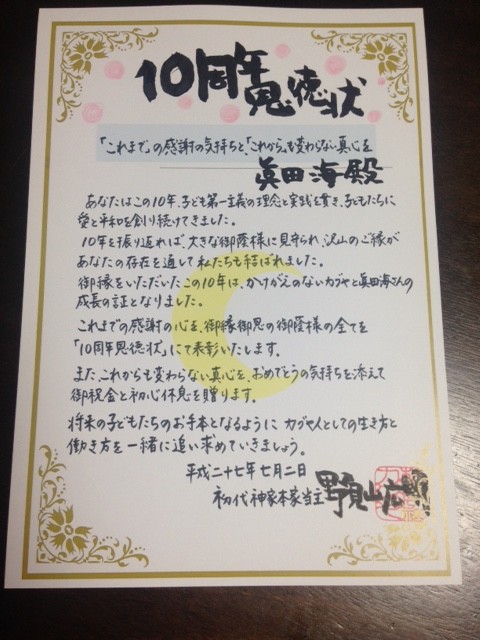 10周年恩徳状
「これまで」の感謝の気持ちと、「これから」も変わらない真心を
眞田海殿
あなたはこの10年、子ども第一主義の理念と実践を貫き、子どもたちに
愛と平和を創り続けてきました。
10年を振り返れば、大きな御蔭様に見守られ、沢山のご縁が
あなたの存在を通して私たちも結ばれました。
御縁をいただいたこの10年は、かけがえのないカグヤと眞田海さんの
成長の証となりました。
これまでの感謝の心を、御縁御恩の御蔭様の全てを
「10周年恩徳状」にて表彰いたします。
また、これからも変わらない真心を、おめでとうの気持ちを添えて
御祝金と初心休息を贈ります。
将来の子どもたちのお手本となるように カグヤ人としての生き方と
働き方を一緒に追い求めていきましょう。
平成二十七年七月二日
初代神家本家当主 野見山広